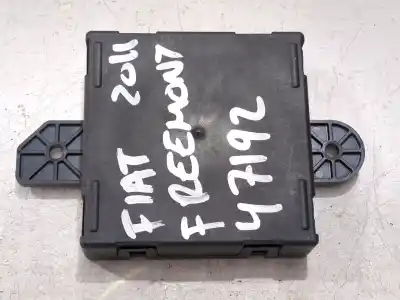 FIAT 2011
FREEMONT
47192